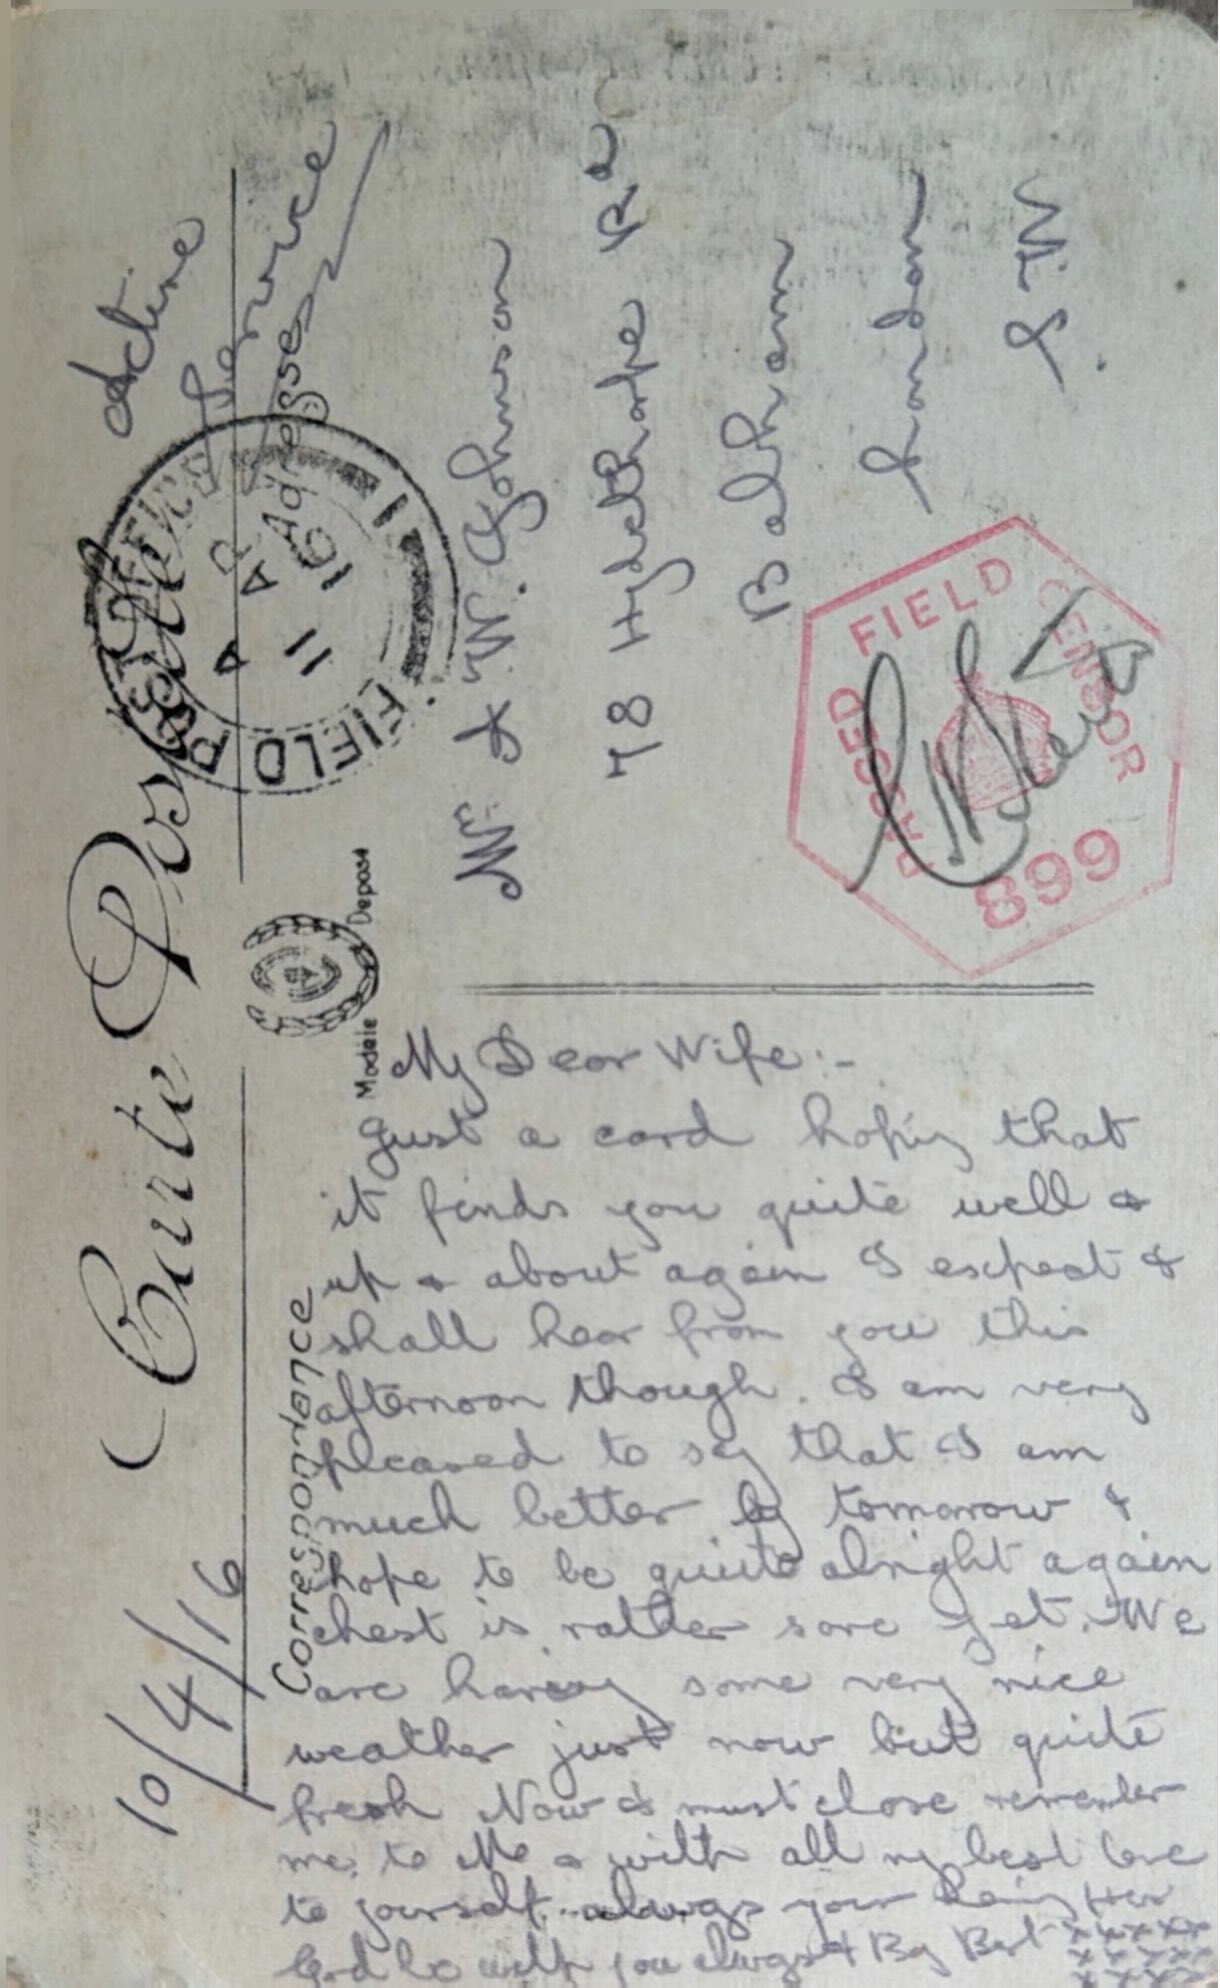 Carte Postale
Active
Service
Adresse
FIELD POST OFFICE
A
AP
11
16
Modèle Déposé
Mrs J. W. Johnson
78 Hydethorpe Rd
Balham
London
S.W.
PASSED FIELD CENSOR
899
10/4/16
Correspondance
My Dear Wife:-
Just a card hoping that
it finds you quite well &
up & about again I expect I
shall hear from you this
afternoon though. I am very
pleased to say that I am
much better by tomorow I
hope to be quite alright again
chest is rather sore yet. We
are having some very nice
weather just now but quite
fresh Now I must close remember
me to & with all my best love
to yourself always your
God be with you always Best